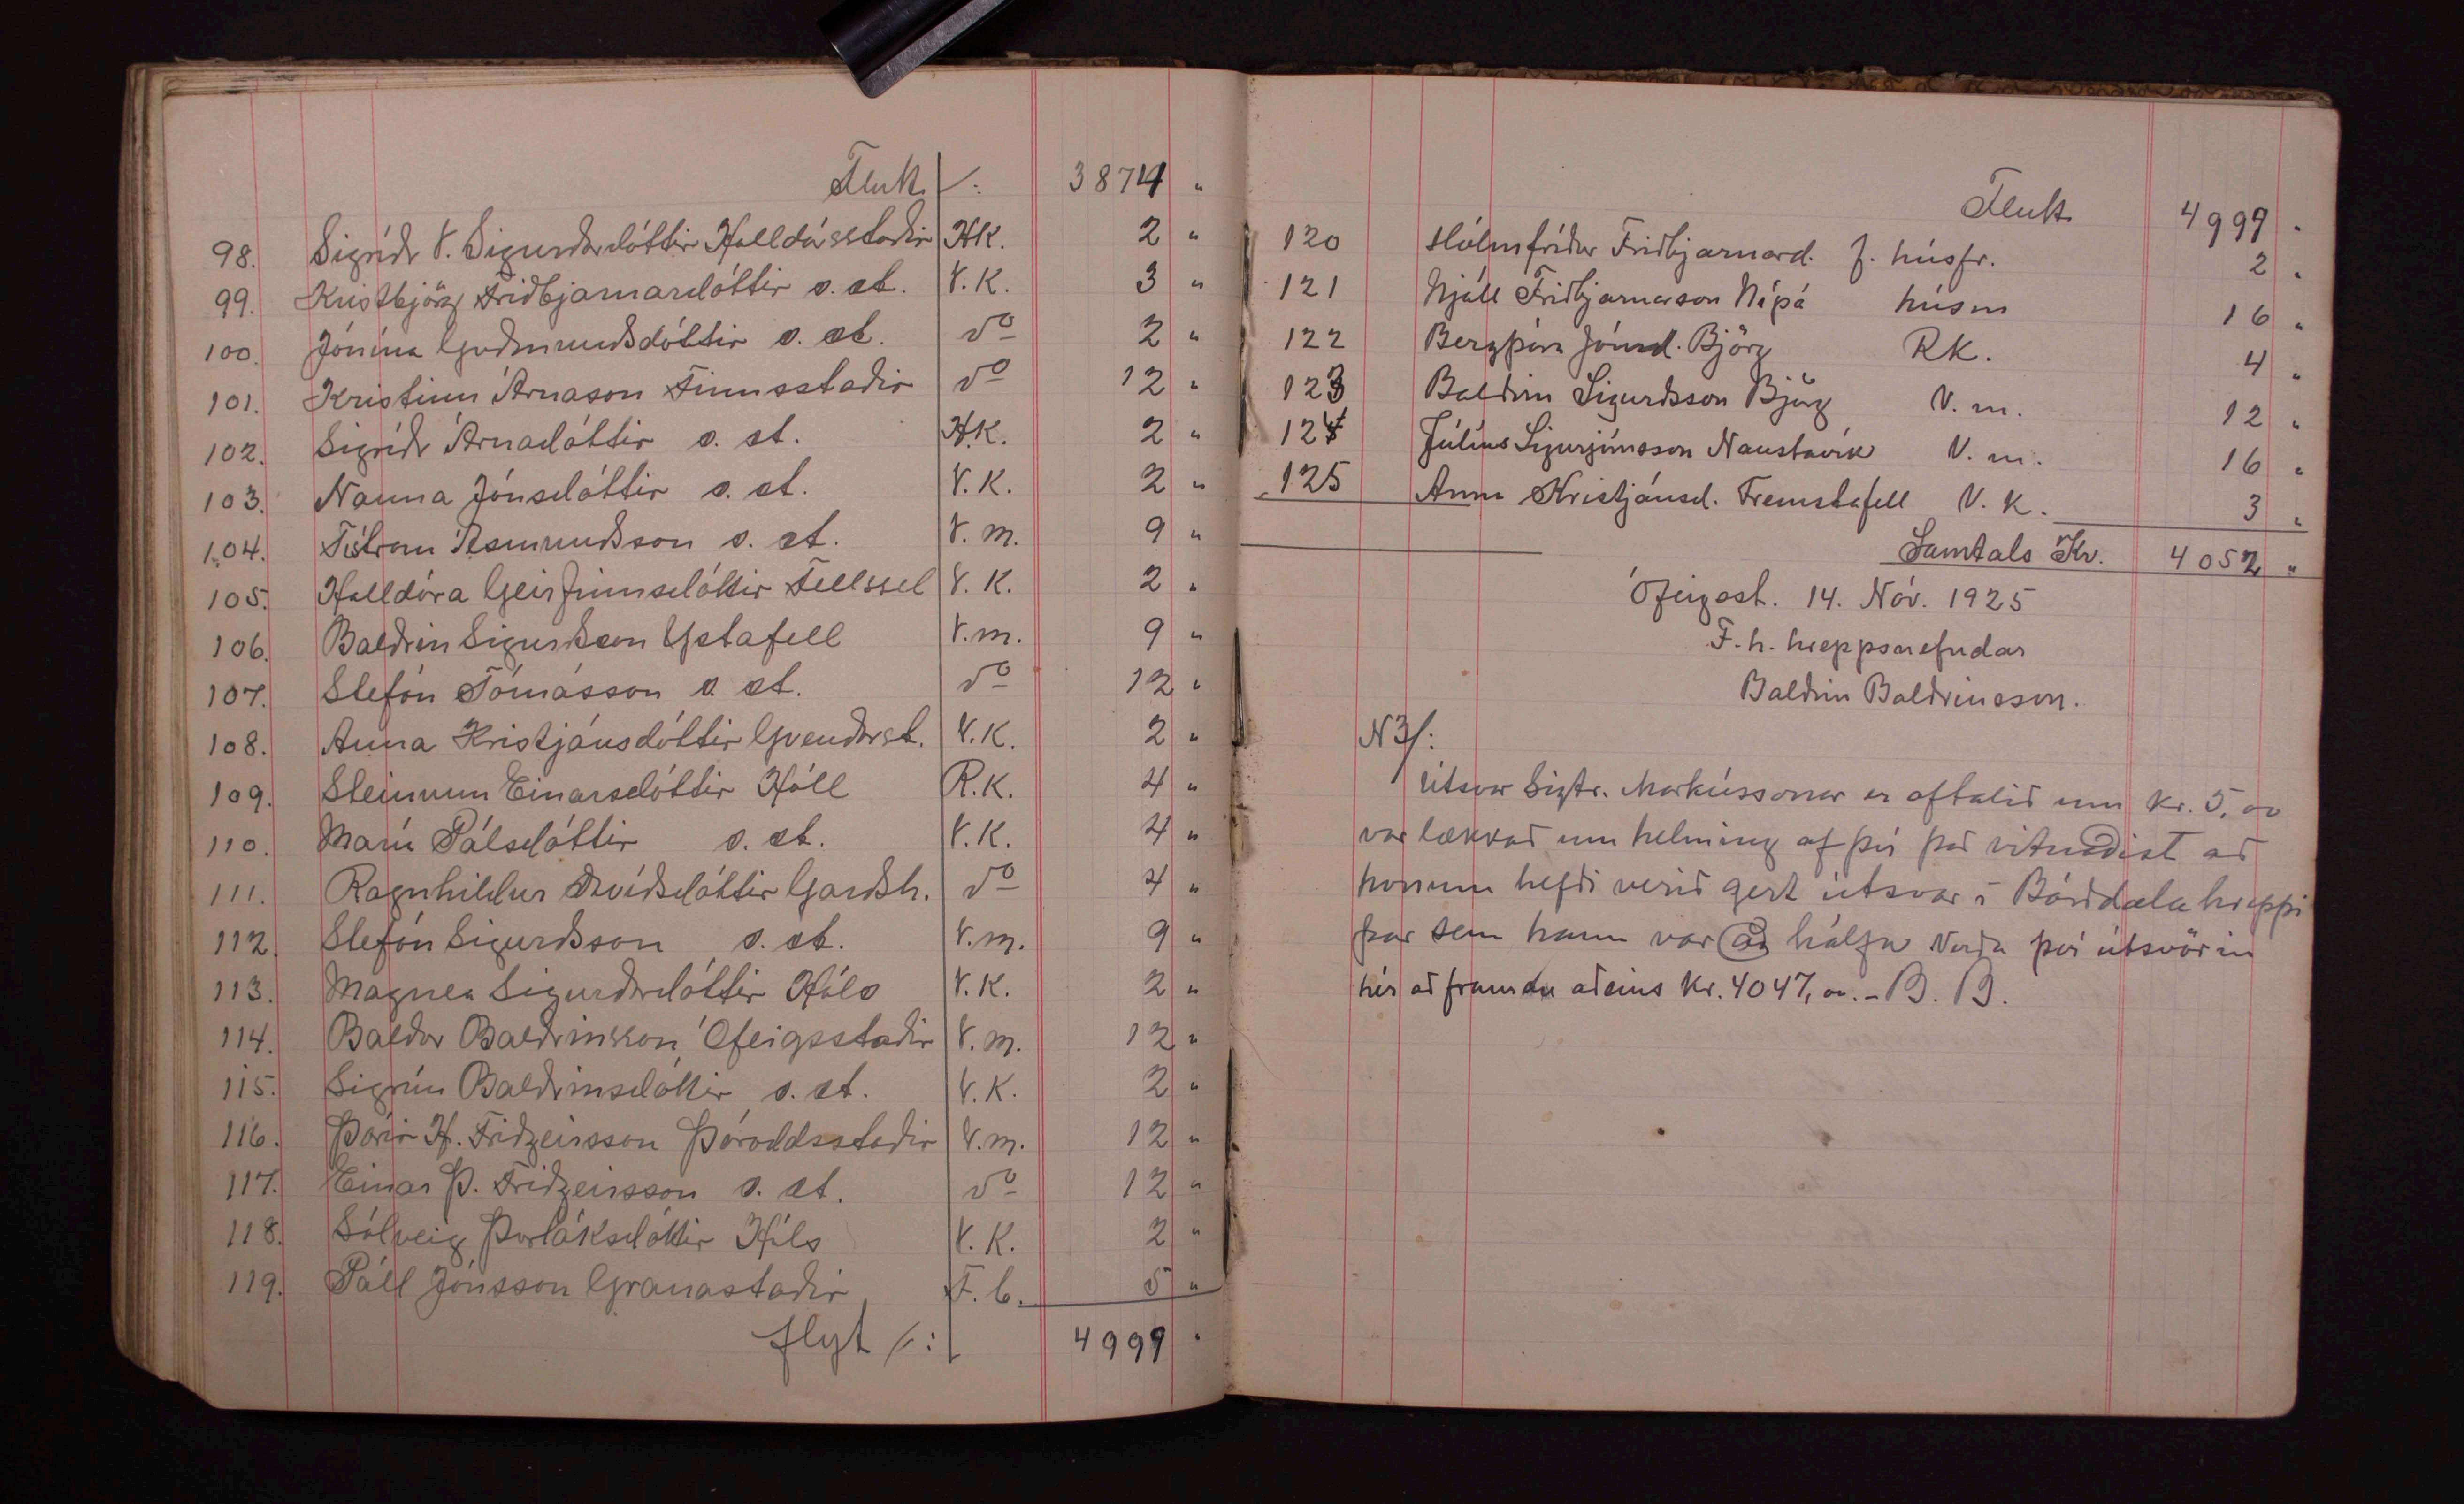 Flutt /: 3874 "
98. Sigríðr V. Sigurðardóttir Halldórsstaðir H.K. 2 "
99. Kristbjörg Friðbjarnardóttir s. st. V.K. 3 "
100. Jónína Guðmundsdóttir s. st. do 2 "
101. Kristinn Árnason Finnsstaðir do 12 "
102. Sigríðr Árnadóttir s. st. H.K. 2 "
103. Nanna Jónsdóttir s. st. V.K. 2 "
104. Ásmundsson s. st. V.m. 9 "
105. Halldóra Geirfinnsdóttir Fellssel V.K. 2 "
106. Baldvin Sigurðsson Ystafell V.m. 9 "
107. Stefán Tómásson s. st. do 12 "
108. Anna Kristjánsdóttir Gvendarst. V.K. 2 "
109. Steinunn Einarsdóttir Hóll R.K. 4 "
110. María Pálsdóttir s. st. V.K. 4 "
111. Ragnhildur Davíðsdóttir Garðsh. do 4 "
112. Stefán Sigurðsson s. st. V.m. 9 "
113. Magnea Sigurðardóttir Háls V.K. 2 "
114. Baldur Baldvinsson Ófeigsstaðir V.m. 12 "
115. Sigrún Baldvinsdóttir s. st. V.K. 2 "
116. Þórir H. Friðgeirsson Þóroddsstaðir V.m. 12 "
117. Einar Þ. Friðgeirsson s. st. do 12 "
118. Sólveig Þorláksdóttir Háls V.K. 2 "
119. Páll Jónsson Granastaðir F.b. 5 "
flyt /: 4999 "
Flutt 4999 "
120 Hólmfríður Friðbjarnard. f. húsfr. 2 "
121 Njáll Friðbjarnarson Nípá húsm 16 "
122 Bergþóra Jónsd. Björg RK. 4 "
123 Baldvin Sigurðsson Björg V.m. 12 "
124 Júlíus Sigurjónsson Naustavík V.m. 16 "
125 Anna Kristjánsd. Fremstafell V.K. 3 "
Samtals Kr. 4052 "
Ófeigsst. 14. Nóv. 1925
F.h. hreppsnefndar
Baldvin Baldvinsson.
NB/:
Útsvar Sigtr. Markússonar er oftalið um kr. 5,00
var lækkað um helming af því það vitnaðist að
honum hefði verið gert útsvar í Bárðdælahreppi
þar sem hann var að hálfu Verða því útsvörin
hér að framan aðeins Kr. 4047,00. - B. B.